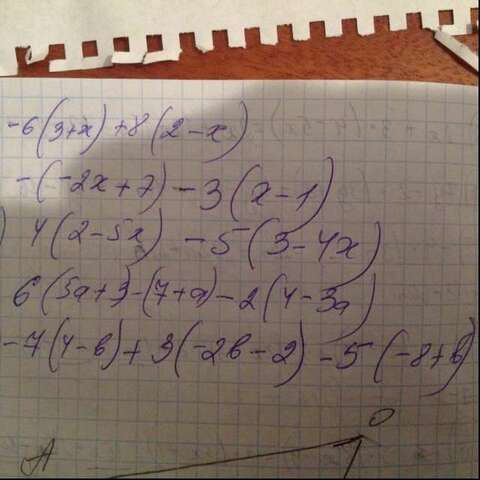 -6(3+x)+8(2-x)
-(-2x+7)-3(x-1)
) 4(2-5x) -5(3-4x)
6(5a+3-(7+a)-2(4-3a)
-7(4-b)+3(-2b-2)-5(-8+b)
O
A